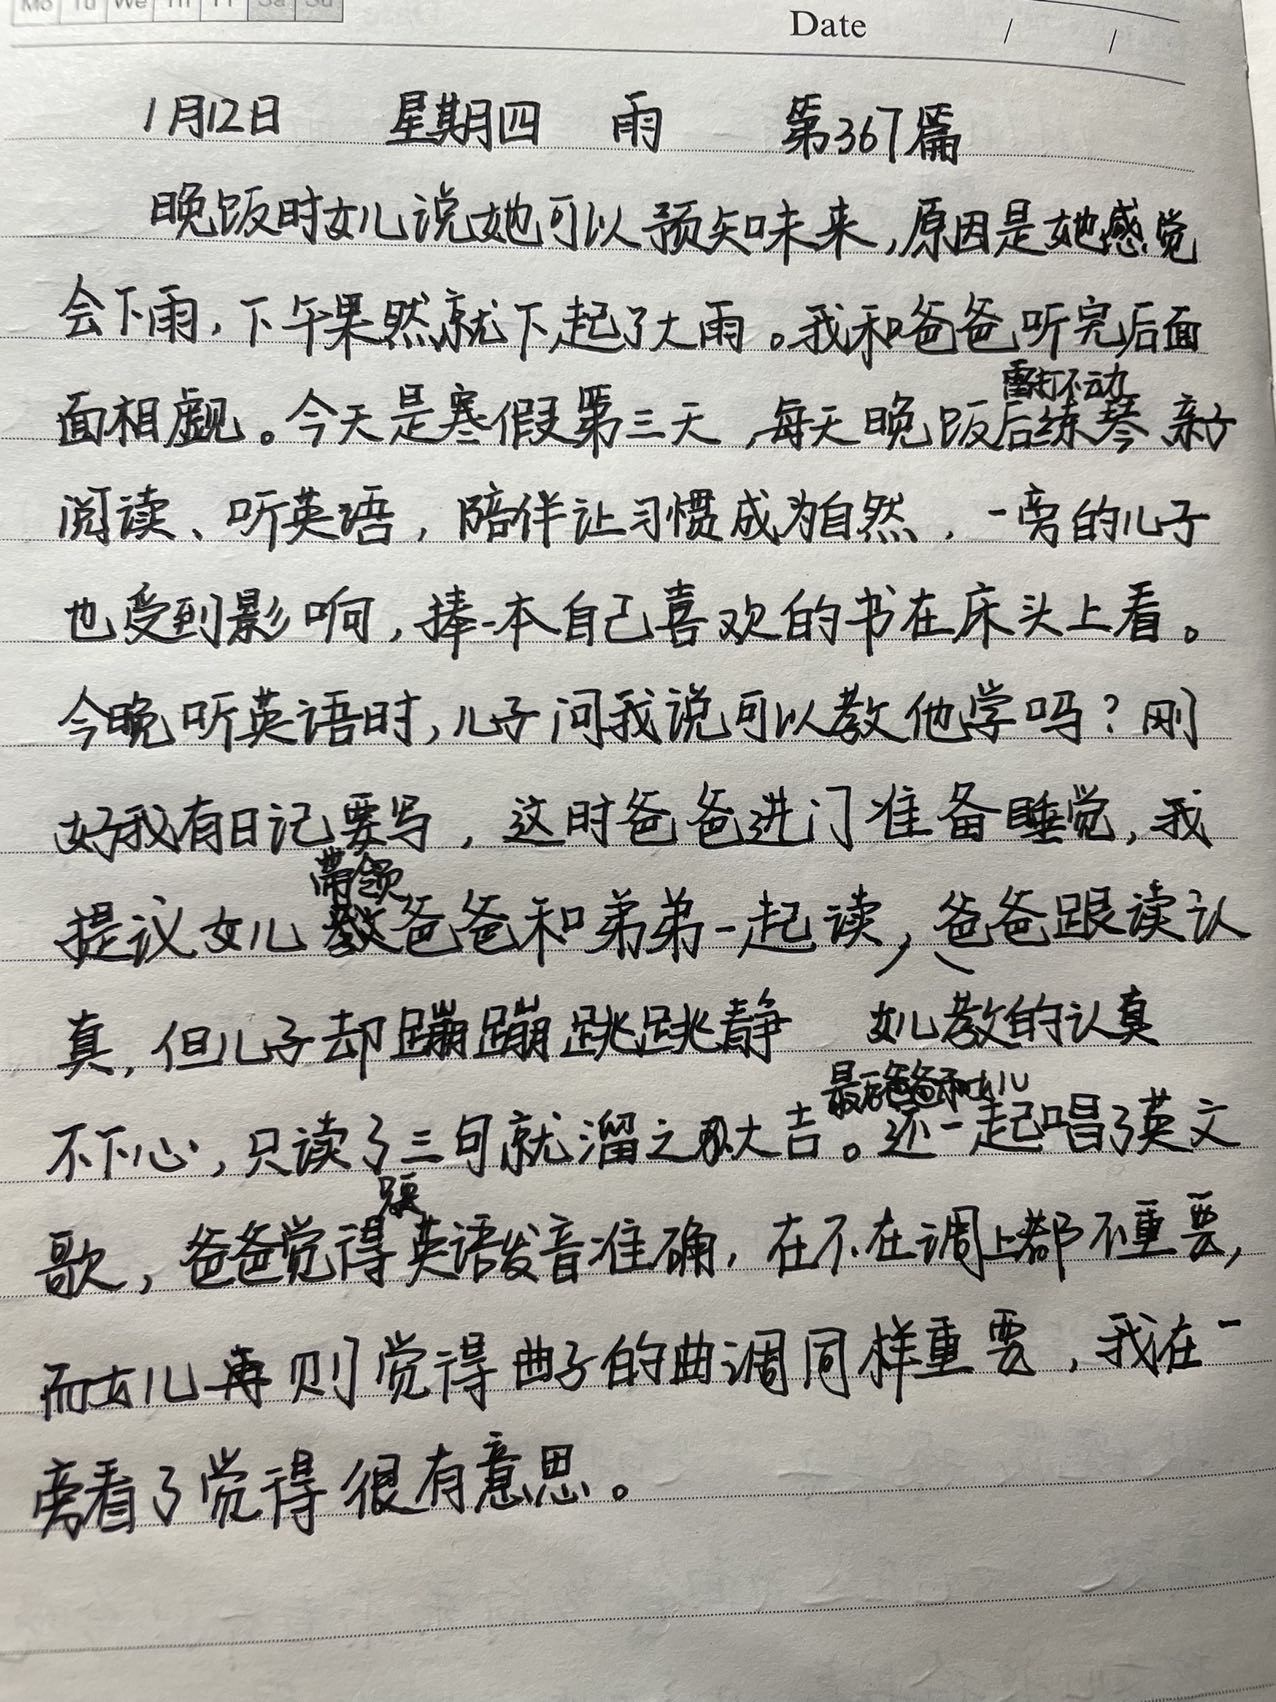 Mo Tu We Th Fr Sa Su
Date / /
1月12日 星期四 雨 第367篇
晚饭时女儿说她可以预知味来,原因是她感觉
会下雨,下午果然就下起了大雨。我和爸爸听完后面
面相觑。今天是寒假第三天,每天晚饭后练琴亲子
雷打不动
阅读、听英语,陪伴让习惯成为自然,一旁的儿子
也受到影响,捧一本自己喜欢的书在床头上看。
今晚听英语时,儿子问我说可以教他学吗?刚
好我有日记要写,这时爸爸进门准备睡觉,我
带领
提议女儿教爸爸和弟弟一起读,爸爸跟读认
真,但儿子却蹦蹦跳跳静 女儿教的认真
最后爸爸和女儿
不下心,只读了三句就溜之大吉。还一起唱了英文
歌,爸爸觉得英语发音准确,在不在调上都不重要,
只要
而女儿再则觉得曲子的曲调同样重要,我在一
旁看了觉得很有意思。